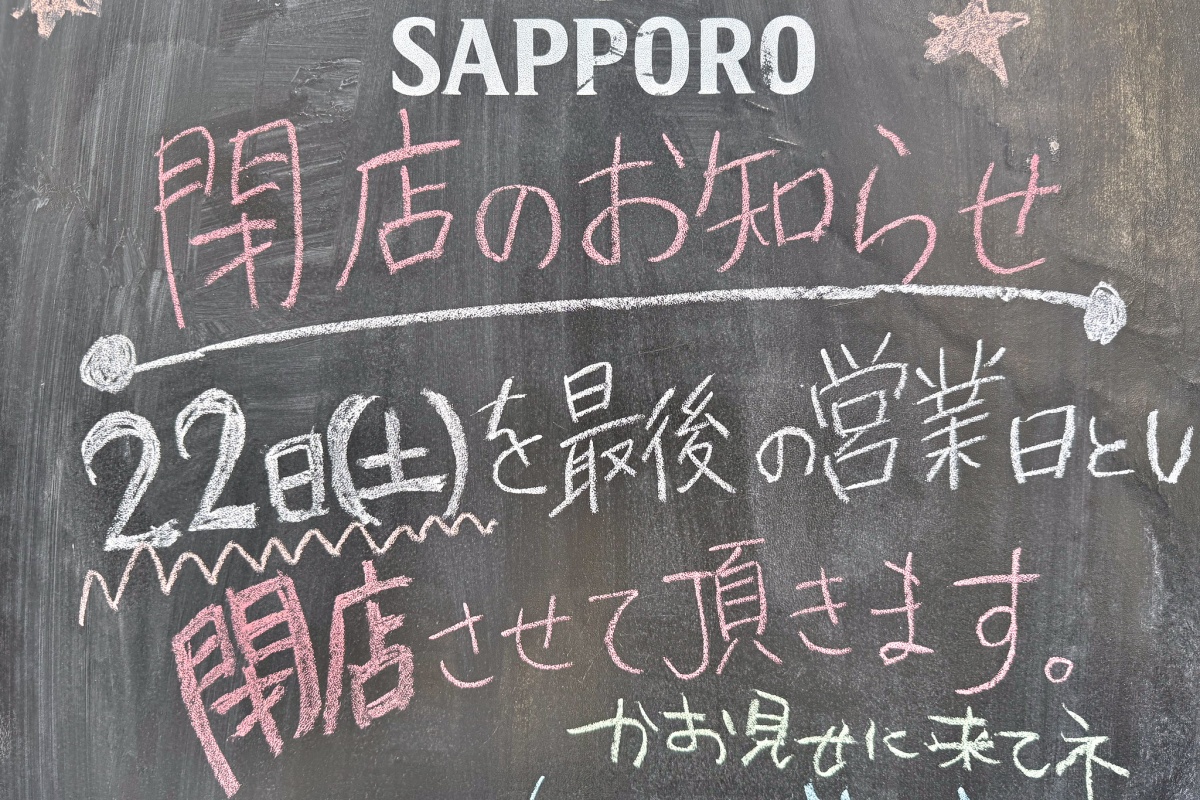 SAPPORO
閉店のお知らせ
22日(土)を最後の営業日とし
閉店させて頂きます。
かお見せに来てネ